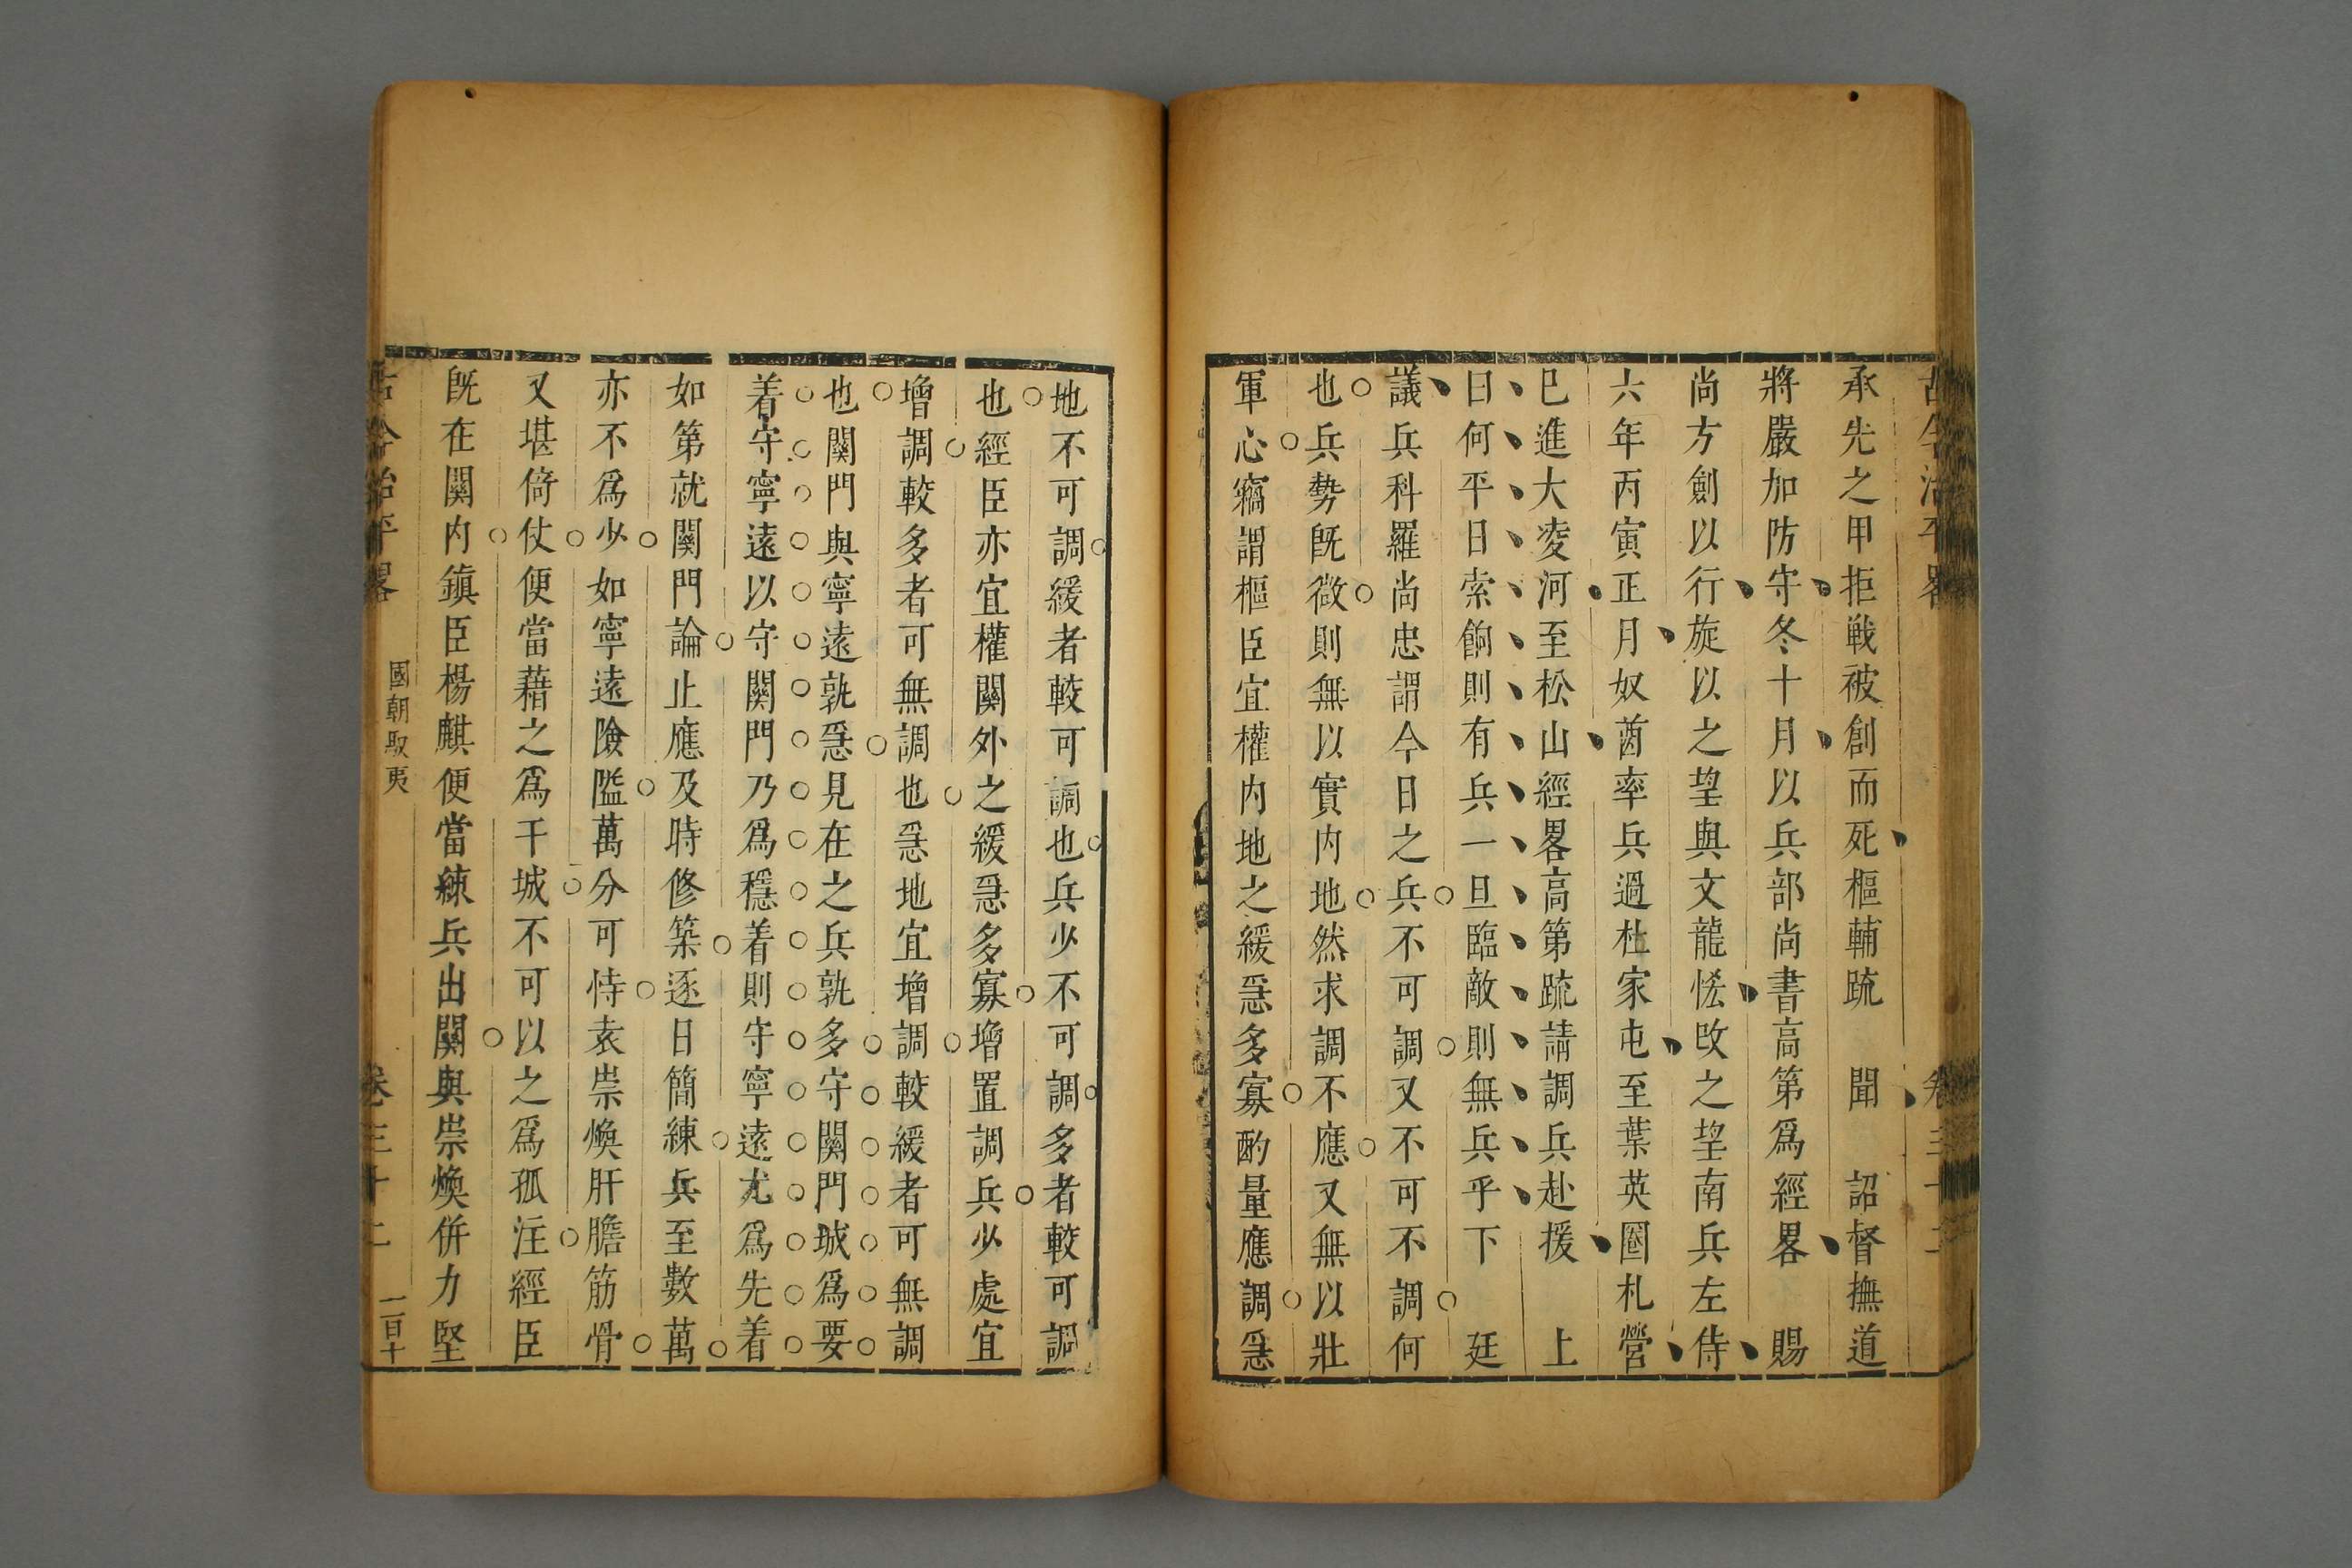 承先之甲拒戦被創而死樞輔疏　聞　詔督撫道
將嚴加防守冬十月以兵部尚書高第爲經畧　賜
尚方劍以行旋以之望與文龍恡改之望南兵左侍
六年丙寅正月奴酋率兵過杜家屯至葉英圈札營
已進大凌河至松山經畧高第疏請調兵赴援　上
曰何平日索餉則有兵一旦臨敵則無兵乎下　廷
議兵科羅尚忠謂今日之兵不可調又不可不調何
也兵勢旣微則無以實內地然求調不應又無以壯
軍心竊謂樞臣宜權內地之緩急多寡酌量應調急
地不可調緩者較可調也兵少不可調多者較可調
也經臣亦宜權關外之緩急多寡增置調兵少處宜
增調較多者可無調也急地宜增調較緩者可無調
也關門與寧遠孰急見在之兵孰多守關門城爲要
着守寧遠以守關門乃爲穩着則守寧遠尤爲先着
如第就關門論止應及時修築逐日簡練兵至數萬
亦不爲少如寧遠險隘萬分可恃袁崇煥肝膽筋骨
又堪倚仗便當藉之爲干城不可以之爲孤注經臣
旣在關內鎮臣楊麒便當練兵出關與崇煥併力堅
古今治平畧
國朝馭夷
卷三十二
二百十